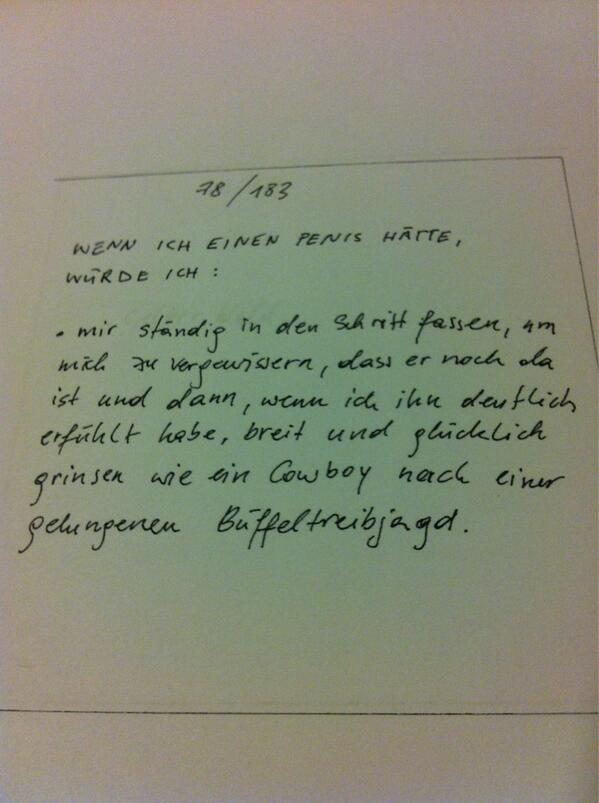 78/183
WENN ICH EINEN PENIS HÄTTE,
WÜRDE ICH:
• mir ständig in den Schritt fassen, um
mich zu vergewissern, dass er noch da
ist und dann, wenn ich ihn deutlich
erfühlt habe, breit und glücklich
grinsen wie ein Cowboy nach einer
gelungenen Büffeltreibjagd.